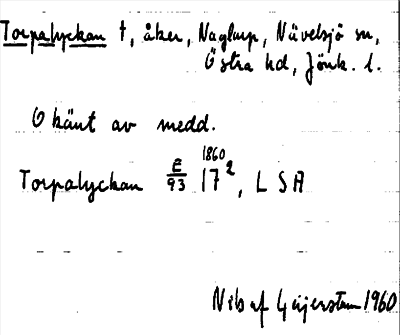 Torpalyckan †, åker, Naglarp, Nävelsjö sn,
Östra hd, Jönk. l.
Okänt av medd.
Torpalyckan E/93 1860 17², LSA
Nils af Geijerstam 1960